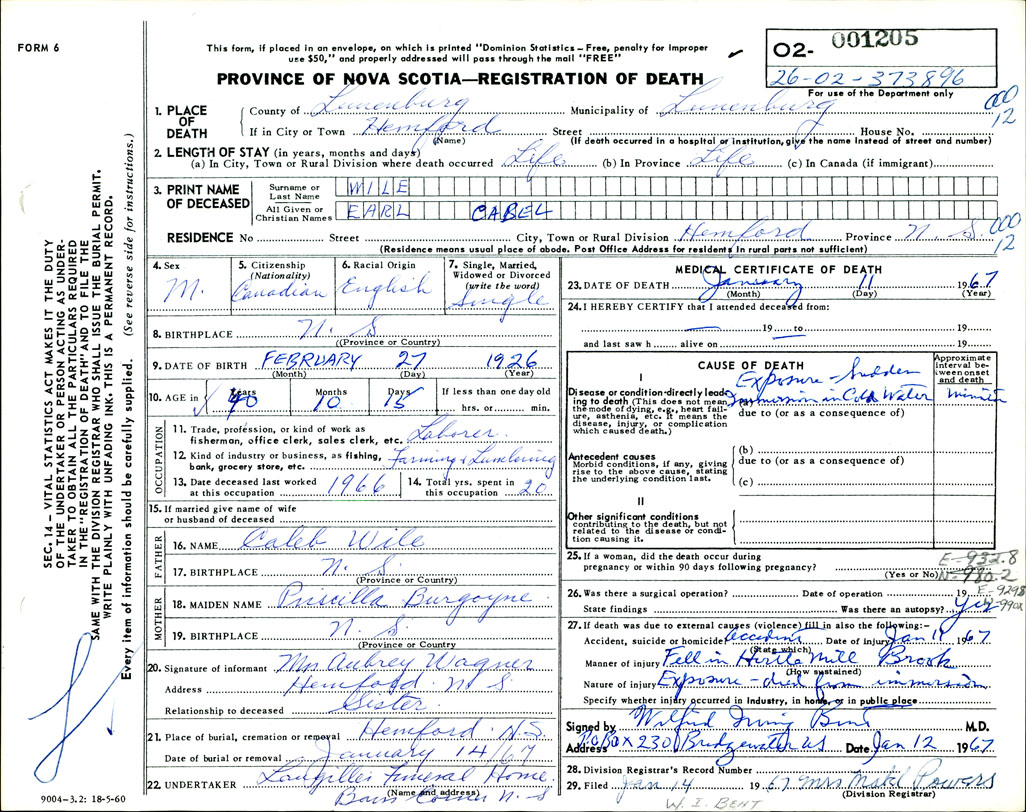 FORM 6
This form, if placed in an envelope, on which is printed "Dominion Statistics – Free, penalty for improper
use $50," and properly addressed will pass through the mail "FREE"
PROVINCE OF NOVA SCOTIA—REGISTRATION OF DEATH
O2- 001205
26-02-373896
For use of the Department only
000
12
1. PLACE OF DEATH
County of Lunenburg Municipality of Lunenburg
If in City or Town Hemford Street House No.
(Name) (If death occurred in a hospital or institution, give the name instead of street and number)
2. LENGTH OF STAY (in years, months and days)
(a) In City, Town or Rural Division where death occurred Life (b) In Province Life (c) In Canada (if immigrant)
3. PRINT NAME OF DECEASED
Surname or Last Name WILE
All Given or Christian Names EARL CABEL
RESIDENCE No Street City, Town or Rural Division Hemford Province N. S.
000
12
(Residence means usual place of abode. Post Office Address for residents in rural parts not sufficient)
4. Sex
M.
5. Citizenship
(Nationality)
Canadian
6. Racial Origin
English
7. Single, Married,
Widowed or Divorced
(write the word)
Single
8. BIRTHPLACE N. S
(Province or Country)
9. DATE OF BIRTH FEBRUARY 27 1926
(Month) (Day) (Year)
10. AGE in Years Months Days If less than one day old
40 10 15 hrs. or min.
OCCUPATION
11. Trade, profession, or kind of work as
fisherman, office clerk, sales clerk, etc. Laborer
12. Kind of industry or business, as fishing,
bank, grocery store, etc. Farming & Lumbering
13. Date deceased last worked
at this occupation 1966
14. Total yrs. spent in
this occupation 20
15. If married give name of wife
or husband of deceased
FATHER
16. NAME Caleb Wile
17. BIRTHPLACE N. S.
(Province or Country)
MOTHER
18. MAIDEN NAME Priscilla Burgoyne
19. BIRTHPLACE N. S
(Province or Country)
20. Signature of informant Mrs Aubrey Wagner
Address Hemford N S
Relationship to deceased Sister
21. Place of burial, cremation or removal Hemford N.S.
Date of burial or removal January 14/67
22. UNDERTAKER Funeral Home
(Name and address)
Corner N. S
MEDICAL CERTIFICATE OF DEATH
23. DATE OF DEATH January 11 1967
(Month) (Day) (Year)
24. I HEREBY CERTIFY that I attended deceased from:
19 to 19
and last saw h alive on 19
CAUSE OF DEATH
Approximate interval between onset and death
I
Disease or condition directly leading to death (This does not mean the mode of dying, e.g., heart failure, asthenia, etc. It means the disease, injury, or complication which caused death.)
Exposure – Sudden
Immersion in Cold Water minutes
due to (or as a consequence of)
Antecedent causes
Morbid conditions, if any, giving rise to the above cause, stating the underlying condition last.
(b)
due to (or as a consequence of)
(c)
II
Other significant conditions
contributing to the death, but not related to the disease or condition causing it.
25. If a woman, did the death occur during
pregnancy or within 90 days following pregnancy?
(Yes or No)
E-932.8
N-980.2
26. Was there a surgical operation? Date of operation 19
State findings Was there an autopsy? Yes
27. If death was due to external causes (violence) fill in also the following:–
Accident, suicide or homicide accident Date of injury Jan 11 1967
(State which)
Manner of injury Fell in Hirtle Mill Brook
(How sustained)
Nature of injury Exposure – died from immersion
Specify whether injury occurred in industry, in home, or in public place
Signed by Wilfred Irving Bent M.D.
Address PO Box 230 Bridgewater NS Date Jan 12 1967
28. Division Registrar's Record Number
29. Filed Jan 14 1967 Mrs Powers
(Division Registrar)
W. I. BENT
9004–3.2: 18-5-60
SEC. 14 – VITAL STATISTICS ACT MAKES IT THE DUTY
OF THE UNDERTAKER OR PERSON ACTING AS UNDER-
TAKER TO OBTAIN ALL THE PARTICULARS REQUIRED
IN THE "REGISTRATION OF DEATH" AND TO FILE THE
SAME WITH THE DIVISION REGISTRAR WHO SHALL ISSUE THE BURIAL PERMIT.
WRITE PLAINLY WITH UNFADING INK. THIS IS A PERMANENT RECORD.
Every item of information should be carefully supplied. (See reverse side for instructions.)